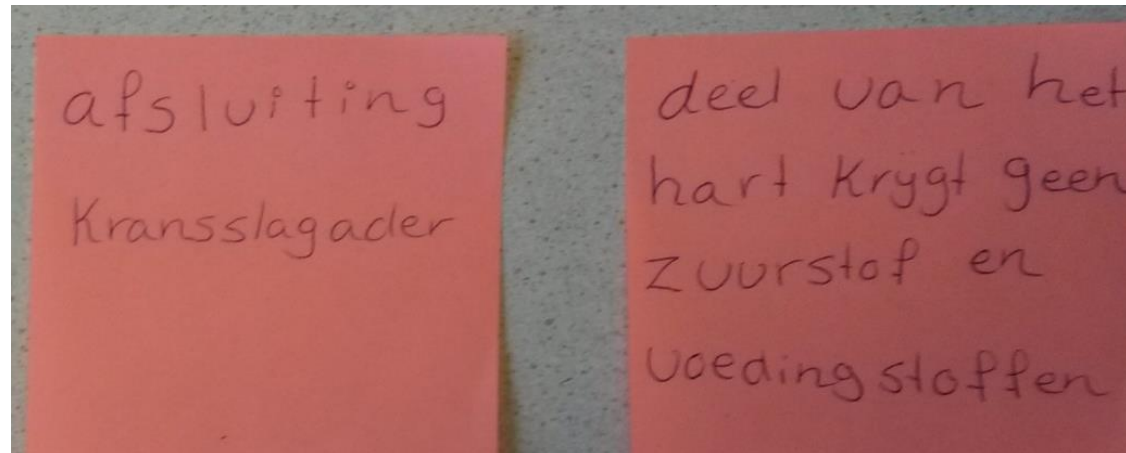 afsluiting
Kransslagader
deel van het
hart krygt geen
zuurstof en
voeding stoffen